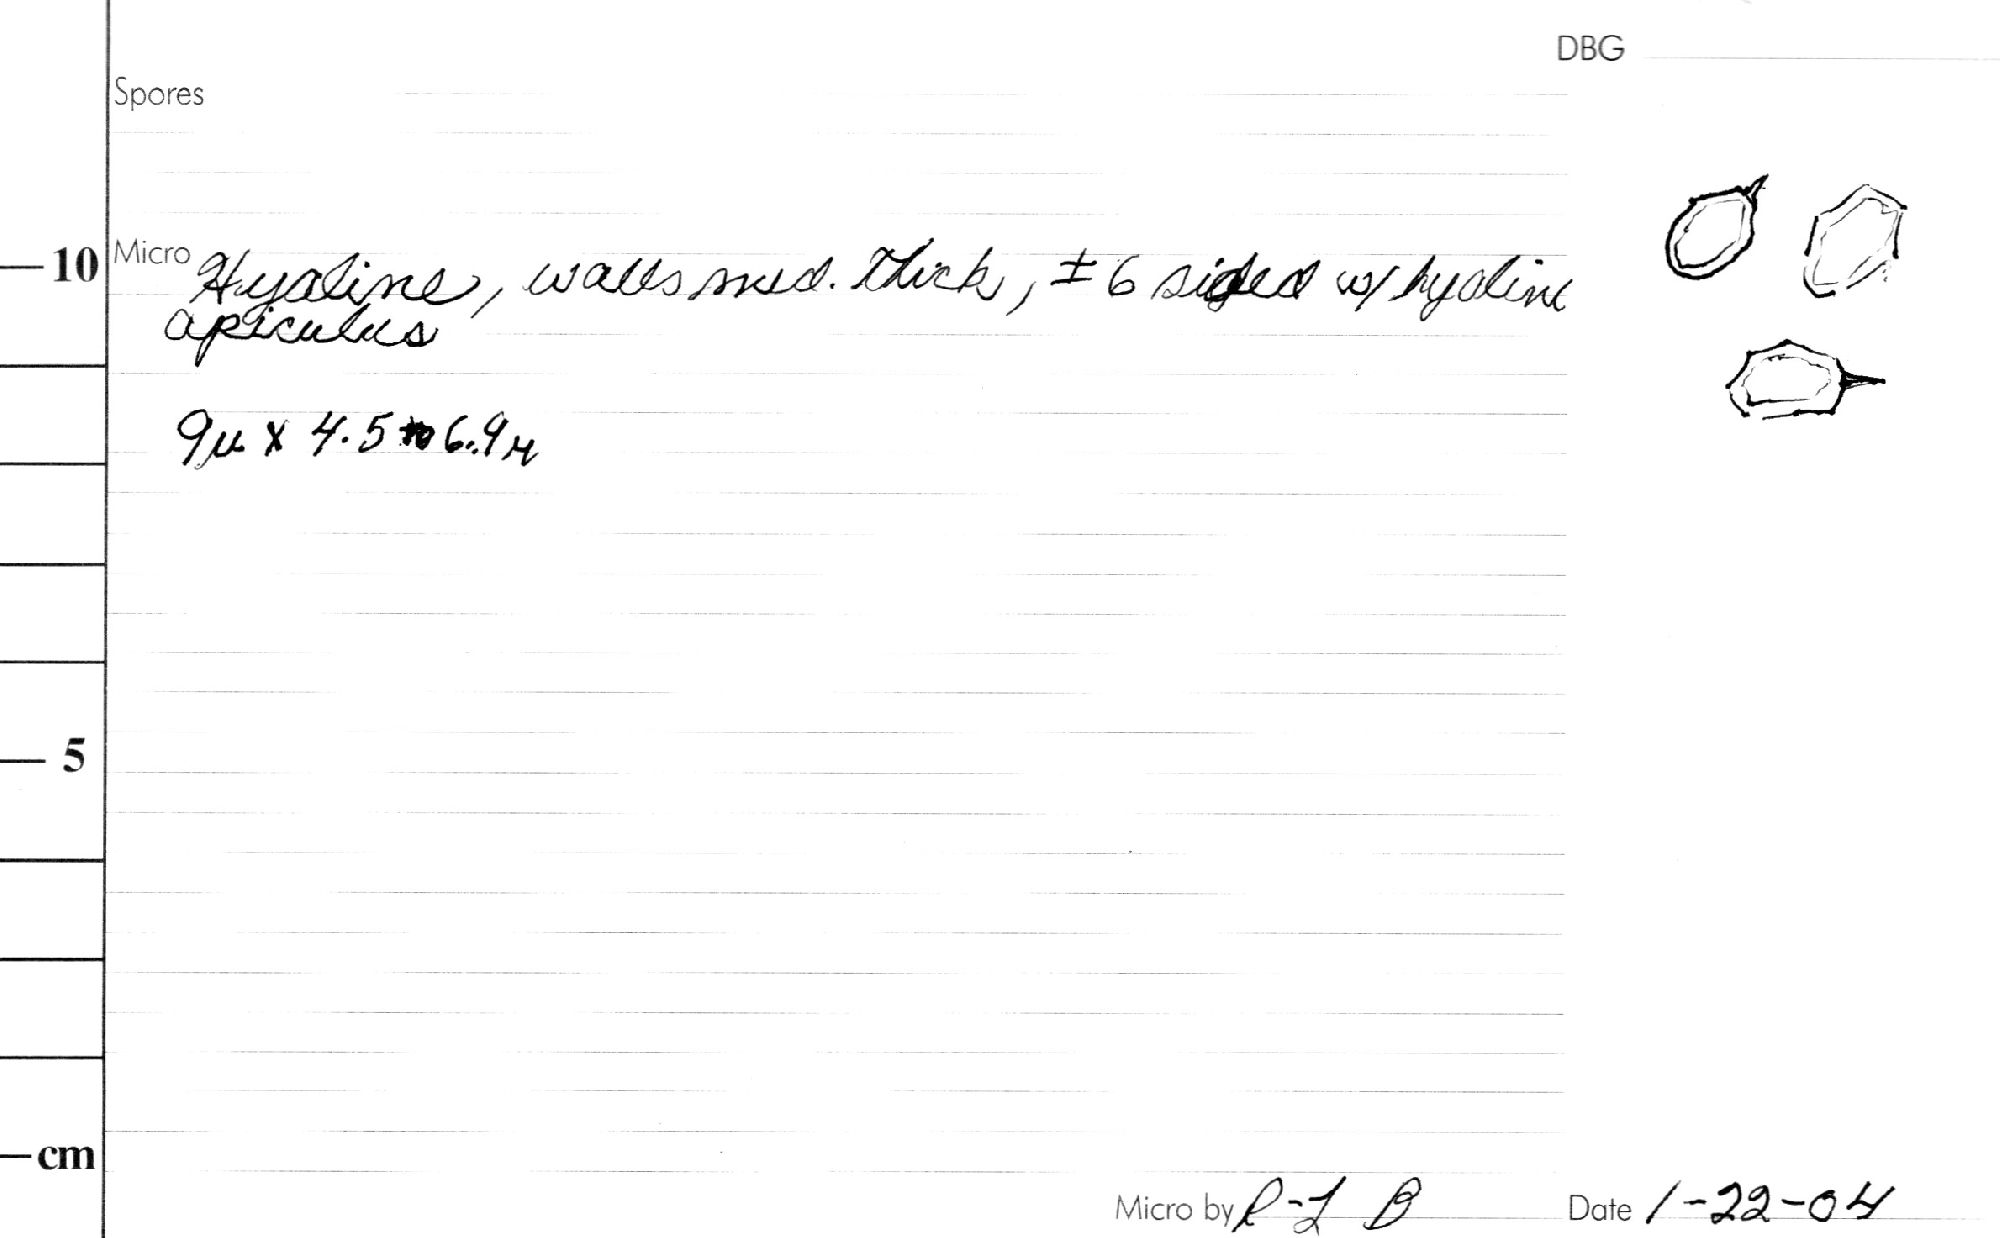 DBG
Spores
10 Micro Hyaline, walls med. thick, ± 6 sided w/ hyaline
apiculus
9µ x 4.5 to 6.9µ
5
cm
Micro by R-L B Date 1-22-04